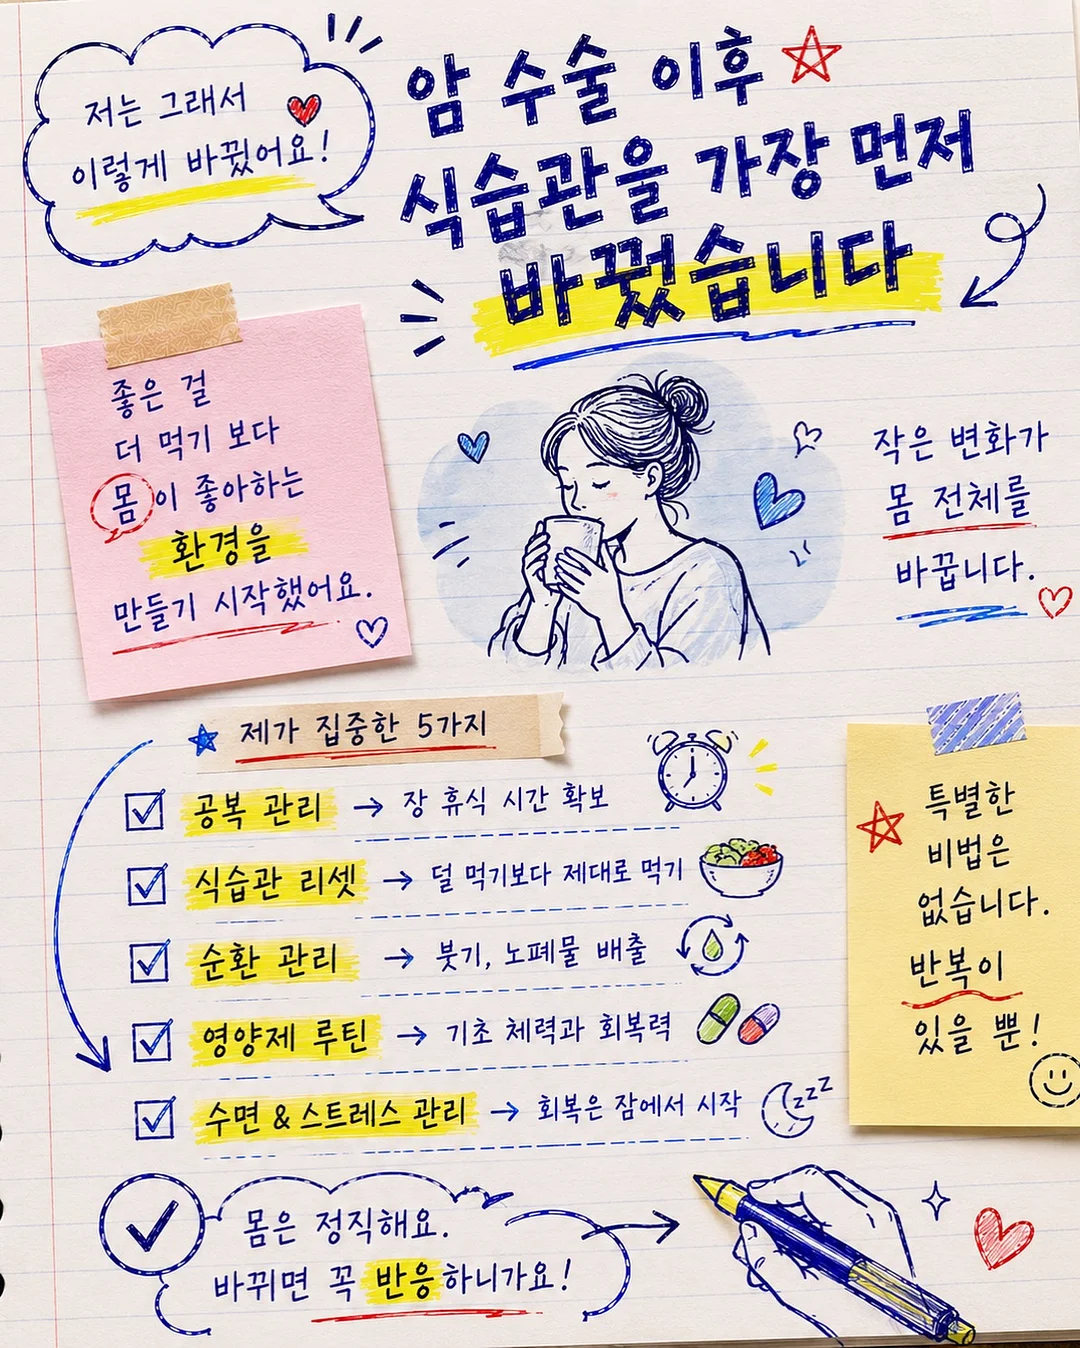 저는 그래서
이렇게 바뀠어요!
암 수술 이후
식습관을 가장 먼저
바꿨습니다
좋은 걸
더 먹기 보다
몸이 좋아하는
환경을
만들기 시작했어요.
작은 변화가
몸 전체를
바꿉니다.
제가 집중한 5가지
공복 관리 → 장 휴식 시간 확보
식습관 리셋 → 덜 먹기보다 제대로 먹기
순환 관리 → 붓기, 노폐물 배출
영양제 루틴 → 기초 체력과 회복력
수면 & 스트레스 관리 → 회복은 잠에서 시작
zzZZ
특별한
비법은
없습니다.
반복이
있을 뿐!
몸은 정직해요.
바뀌면 꼭 반응하니가요!